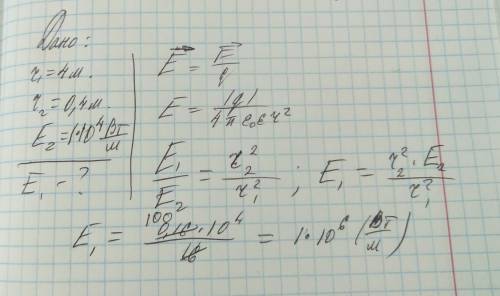 Дано:
r₁=4м.
r₂=0,4м.
E₂=1·10⁴ Вт/м
E₁ - ?
E⃗ = F⃗/q
E = |q|/4πε₀εr²
E₁/E₂ = r₂²/r₁² ; E₁ = r₂²·E₂/r₁²
E₁ = 100 0,16·10⁴/16 = 1·10⁶ (Вт/м)